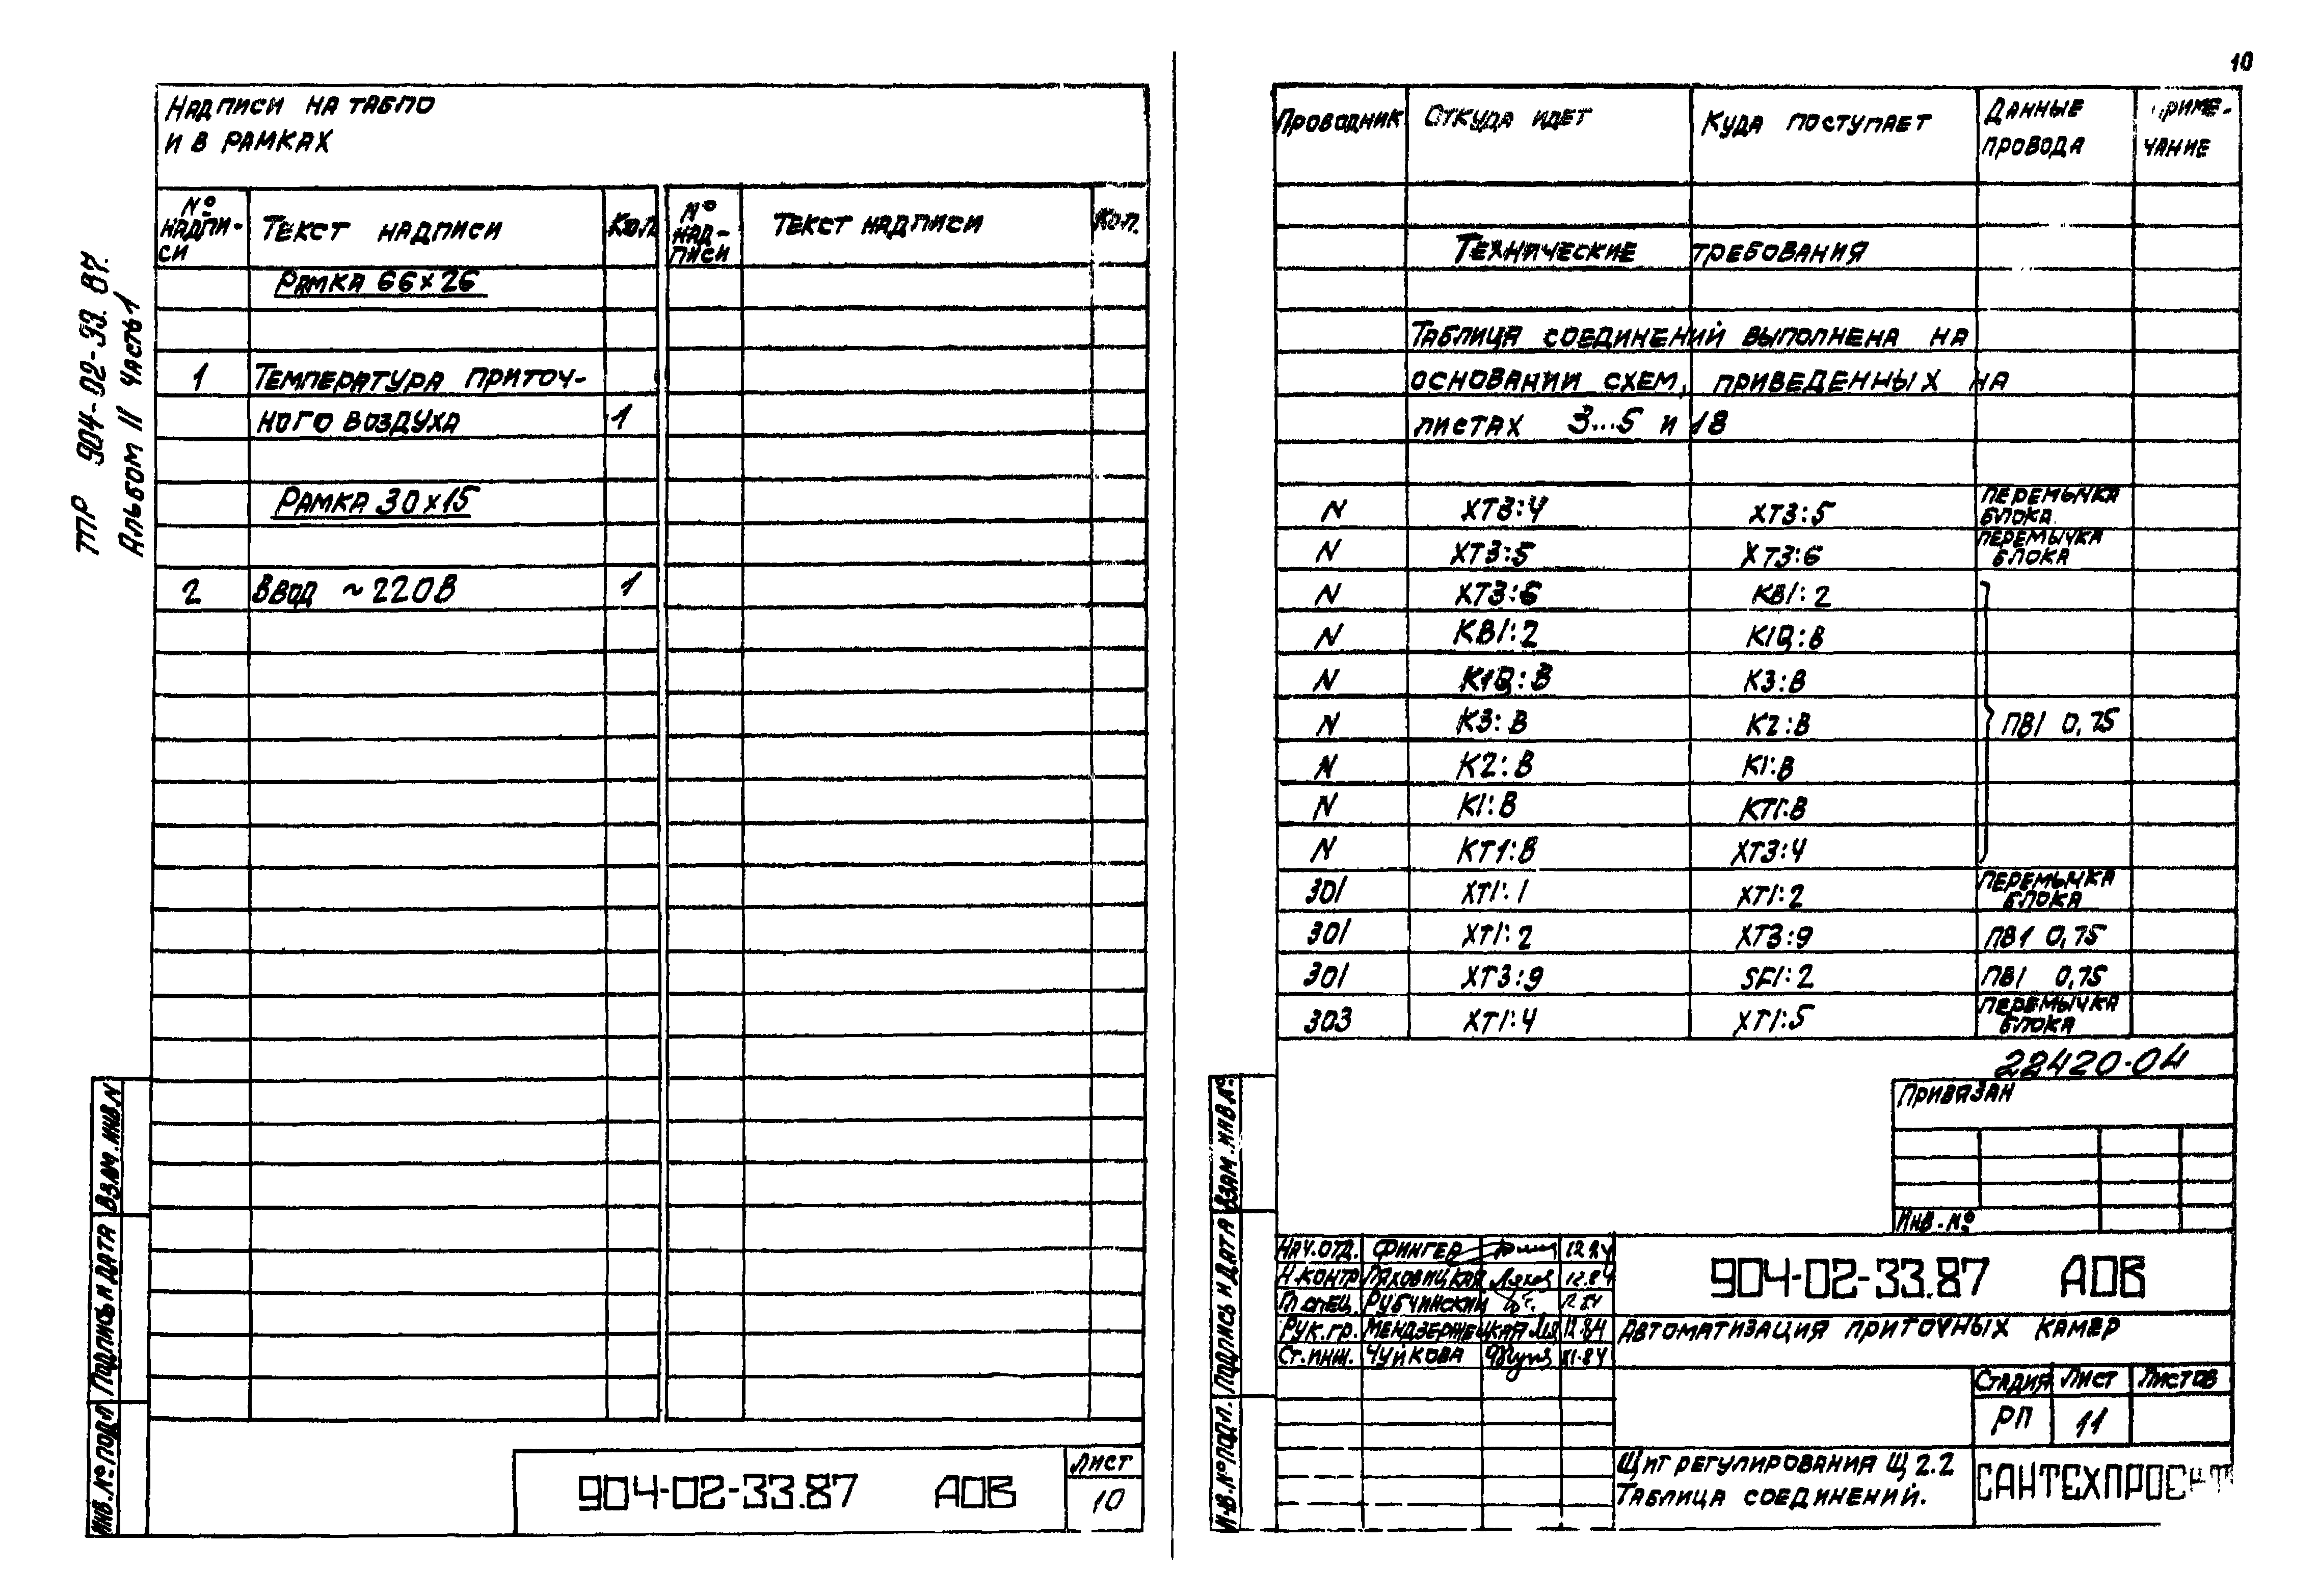 10
ТПР 904-02-33.87.
Альбом II Часть 1
Надписи на табло
и в рамках
№ надпи-
си
Текст надписи
Кол.
№
над-
писи
Текст надписи
Кол.
Рамка 66×26
1 Температура приточ-
ного воздуха 1
Рамка 30×15
2 Ввод ~220В 1
Взам. инв. N
Подпись и дата
Инв. № подл.
904-02-33.87 АОВ
Лист
10
Проводник Откуда идет Куда поступает Данные
провода
Приме-
чание
Технические требования
Таблица соединений выполнена на
основании схем, приведенных на
листах 3...5 и 18
N XT3:4 XT3:5 перемычка
блока
N XT3:5 XT3:6 перемычка
блока
N XT3:6 KB1:2
N KB1:2 K1Q:B
N K1Q:B K3:B
N K3:B K2:B ПВ1 0,75
N K2:B K1:B
N K1:B KT1:B
N KT1:B XT3:4
301 XT1:1 XT1:2 перемычка
блока
301 XT1:2 XT3:9 ПВ1 0,75
301 XT3:9 SF1:2 ПВ1 0,75
303 XT1:4 XT1:5 перемычка
блока
22420-04
Привязан
Инв. №
Взам. инв. №
Подпись и дата
Инв. № подл.
Нач. отд. Фингер
Н.контр Ляховицкая 12.84
Гл спец. Рубчинский 12.84
Рук. гр. Мендзержецкая 12.84
Ст. инж. Чуйкова XI-84
904-02-33.87 АОВ
Автоматизация приточных камер
Стадия Лист Листов
РП 11
Щит регулирования Щ 2.2
Таблица соединений.
САНТЕХПРОЕКТ